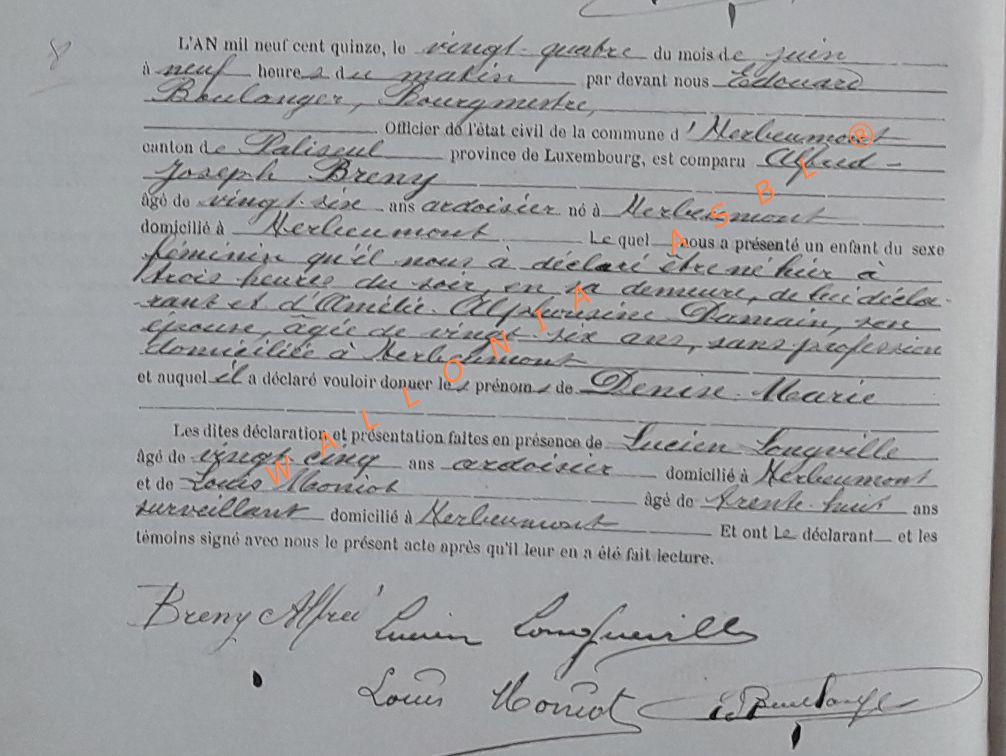 8
L'AN mil neuf cent quinze, le vingt-quatre du mois de juin
à neuf heures du matin par devant nous Edouard
Boulanger, Bourgmestre,
Officier de l'état civil de la commune d'Herbeumont
canton de Paliseul province de Luxembourg, est comparu Alfred-
Joseph Breny
âgé de vingt-six ans ardoisier né à Herbeumont
domicilié à Herbeumont Le quel nous a présenté un enfant du sexe
féminin qu'il nous à déclaré être né hier à
trois heures du soir, en sa demeure, de lui décla-
rant et d'Amélie Alphonsine Damain, son
épouse, âgée de vingt-six ans, sans profession
domiciliée à Herbeumont
et auquel il a déclaré vouloir donner les prénoms de Denise-Marie
Les dites déclaration et présentation faites en présence de Lucien Longville
âgé de vingt-cinq ans ardoisier domicilié à Herbeumont
et de Louis Moniot âgé de trente-huit ans
surveillant domicilié à Herbeumont Et ont Le déclarant et les
témoins signé avec nous le présent acte après qu'il leur en a été fait lecture.
Breny Alfred Lucien Longueville
Louis Moniot E Boulanger
WALLONIA ASBL ®